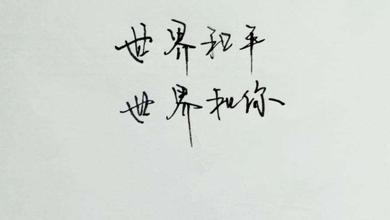 世界和平
世界和你